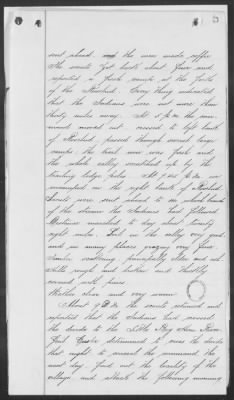 5
sent ahead and the men made coffee
The scouts got back about four and
reported a fresh camp at the forks
of the Rosebud. Every thing indicated
that the Indians were not more than
thirty miles away. At 5 p.m. the com-
mand moved out crossed to left bank
of Rosebud passed through several large
camps the trail was now fresh and
the whole valley scratched up by the
trailing lodge poles At 7.45 p.m. we
encamped on the right bank of Rosebud
Scouts were sent ahead to see which branch
of the stream the Indians had followed
Distance marched to day about twenty
eight miles. Soil in the valley very good
and in many places grazing very fine
Timber scattering, principally elder and ash
Hills rough and broken and thickly
covered with pines
Weather clear and very warm
About 9 P.m. the scouts returned and
reported that the Indians had crossed
the divide to the Little Big Horn River
Genl Custer determined to cross the divide
that night to conceal the command the
next day find out the locality of the
village and attack the following morning